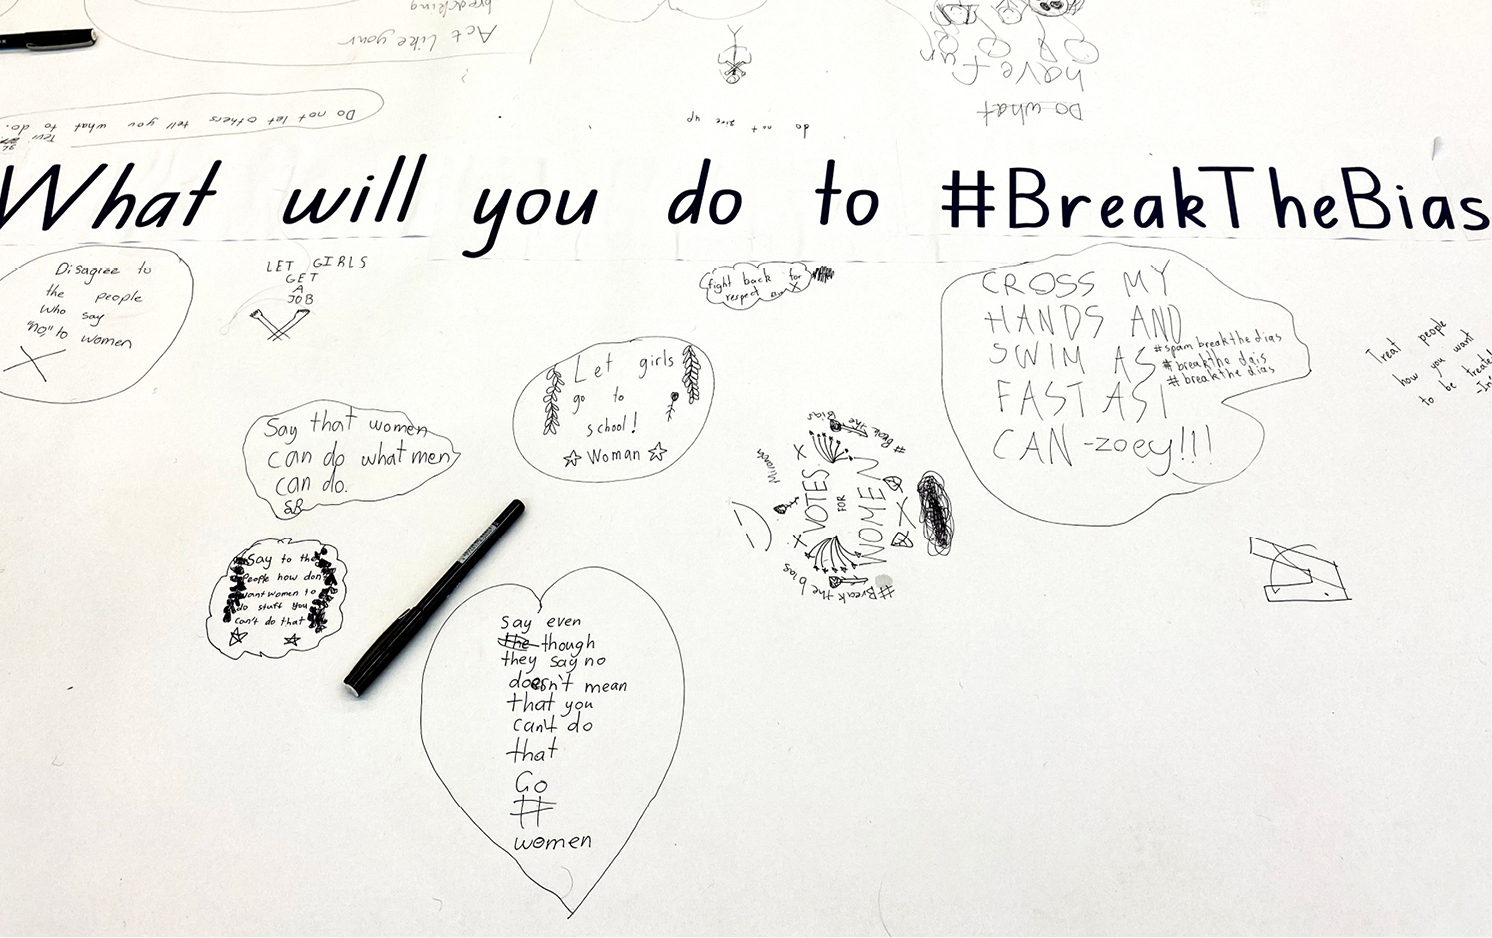 Act like your
breacking
have fun
Do what
Do not let others tell you what to do.
do not give up
What will you do to #BreakTheBias
Disagree to
the people
who say
"no" to women
LET GIRLS
GET
A
JOB
fight back for
respect
CROSS MY
HANDS AND
SWIM AS
FAST AS I
CAN -zoey!!!
#spam breakthe dias
#breakthe dais
#breakthe dias
Treat people
how you want
to be treated
Let girls
go to
school!
Woman
Say that women
can do what men
can do.
VOTES
FOR
WOMEN
#Break the Bias
#Break the bias
Say to the
People how don
want women to
do stuff you
can't do that
say even
the though
they say no
doesn't mean
that you
can't do
that
Go
#
women